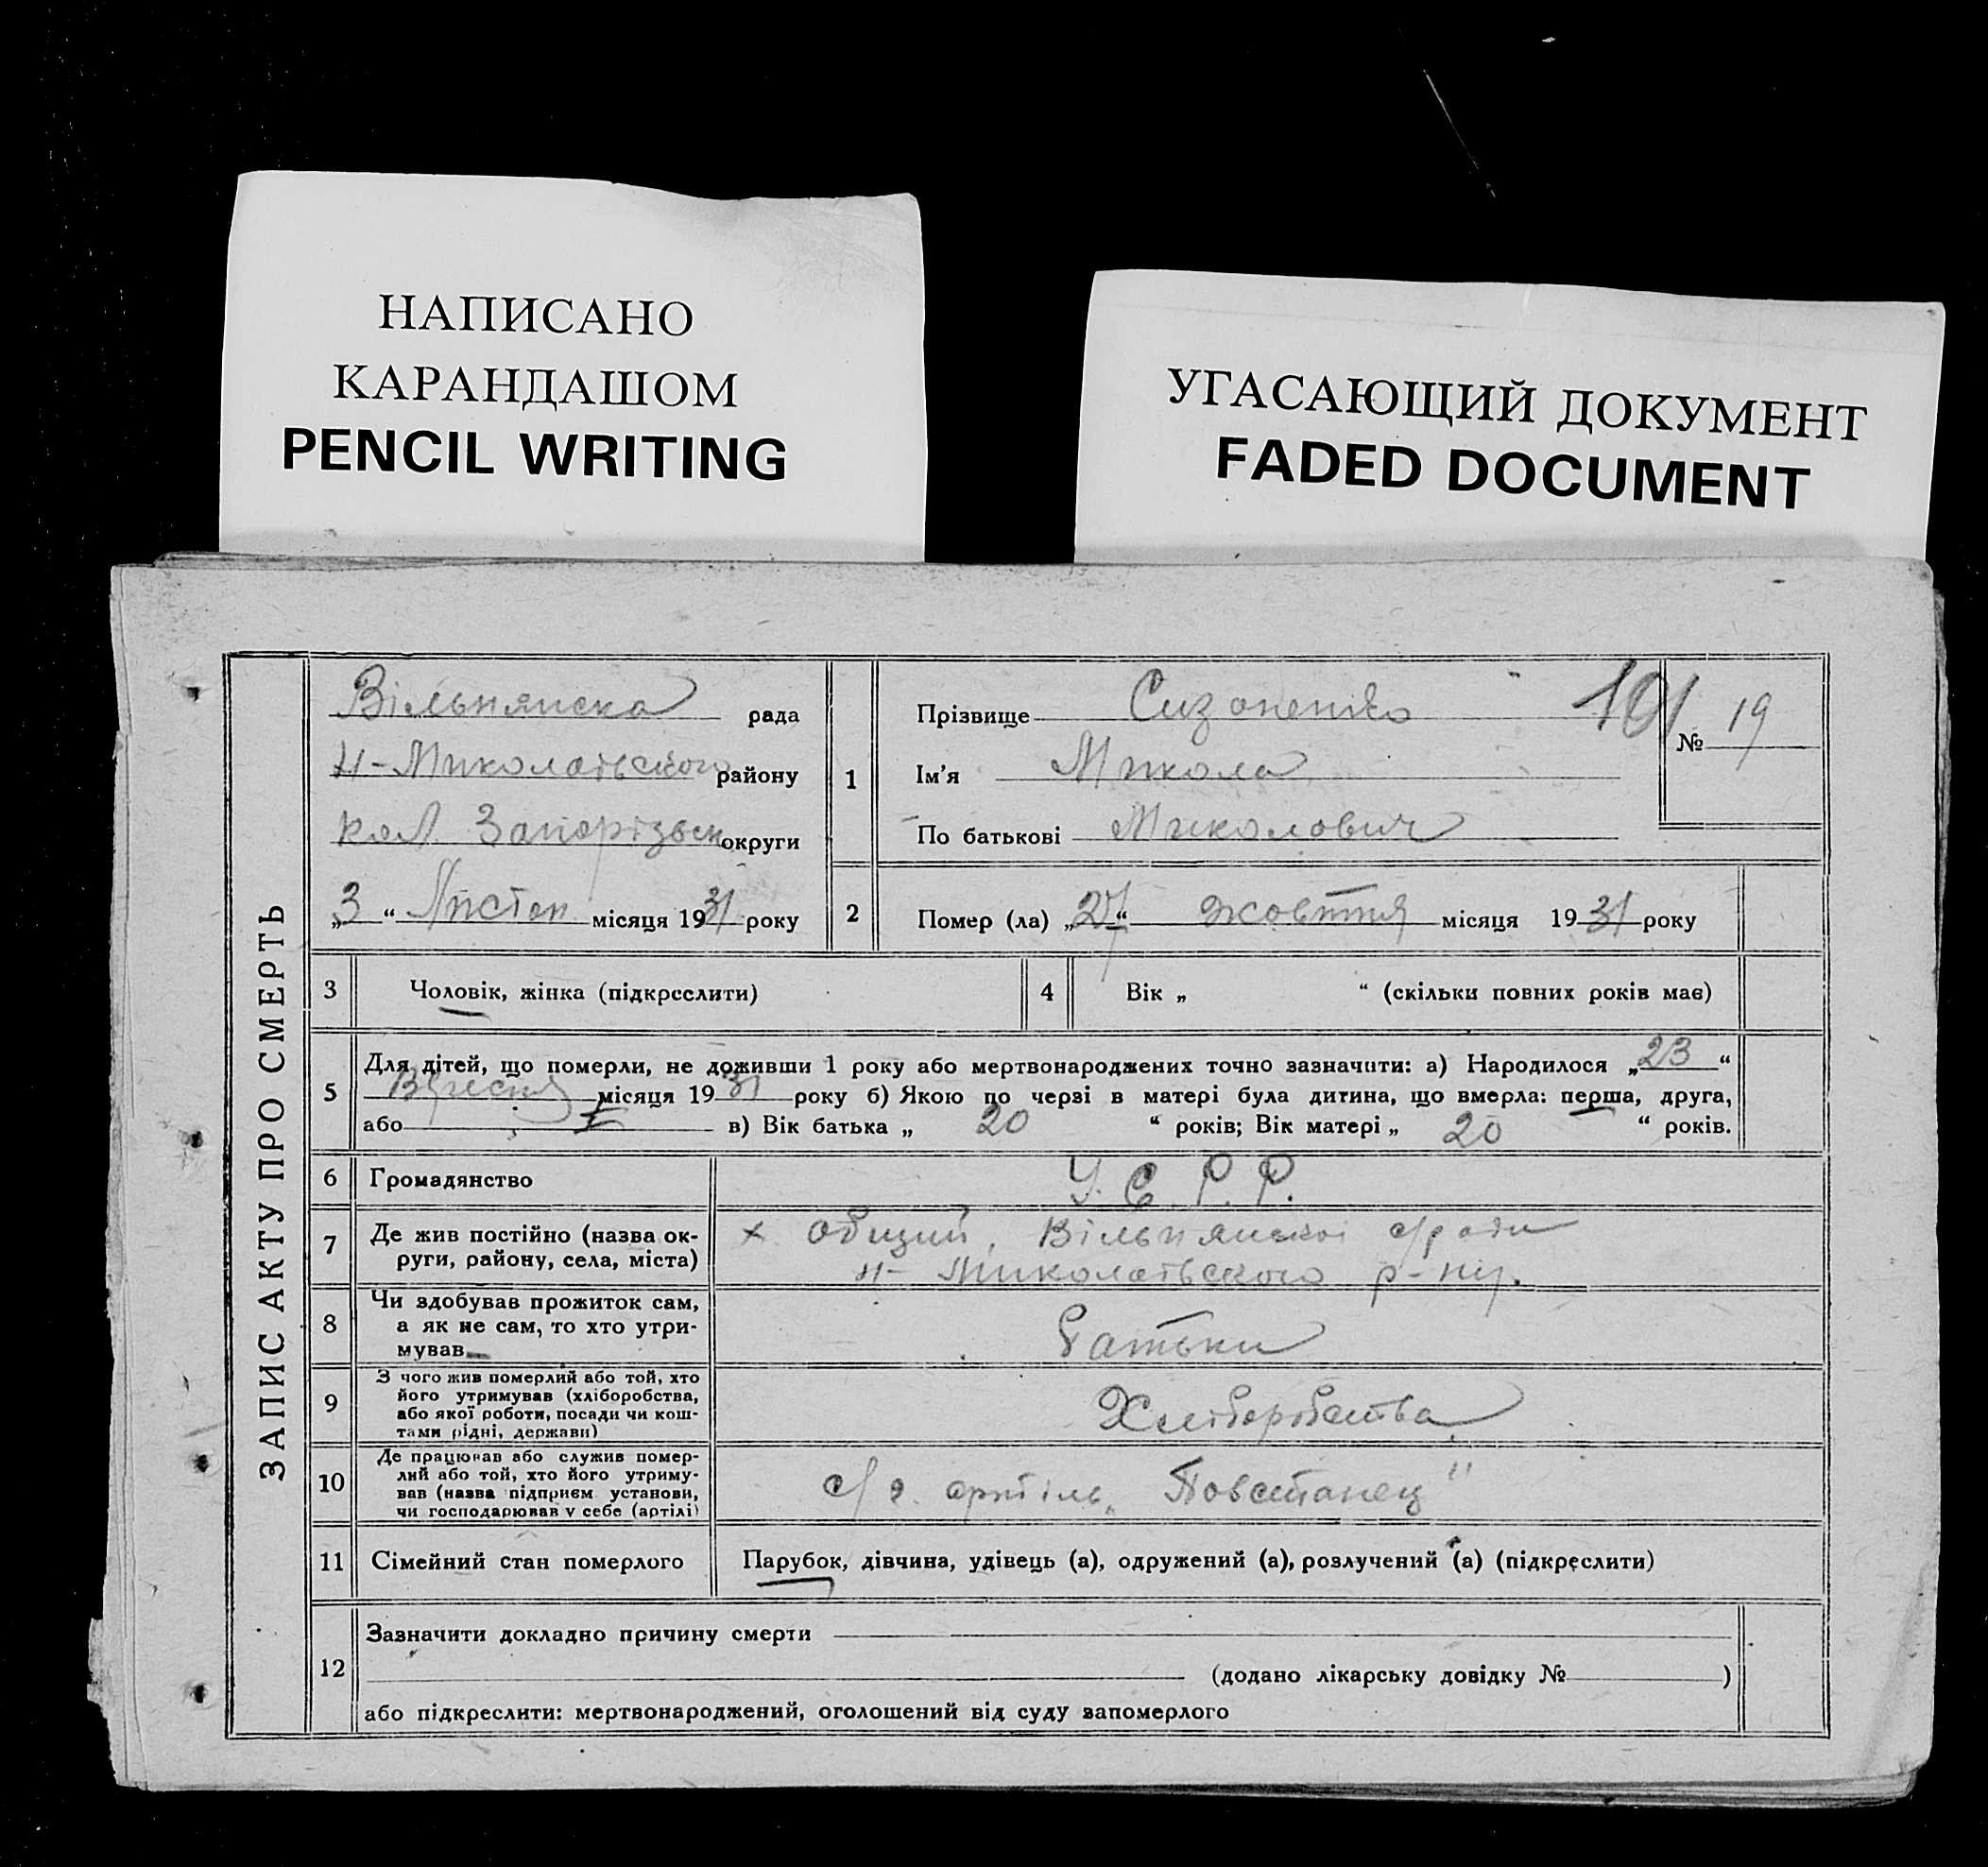 НАПИСАНО
КАРАНДАШОМ
PENCIL WRITING
УГАСАЮЩИЙ ДОКУМЕНТ
FADED DOCUMENT
ЗАПИС АКТУ ПРО СМЕРТЬ
Вільнянска рада
Н-Миколаївського району
кол Запорізьк округи
„3“ Листоп місяця 1931 року
1
Прізвище Сизоненко
101
№ 19
Ім'я Микола
По батькові Миколович
2 Помер (ла) „27“ жовтня місяця 1931 року
3 Чоловік, жінка (підкреслити)
4 Вік „ “ (скільки повних років має)
5 Для дітей, що померли, не доживши 1 року або мертвонароджених точно зазначити: а) Народилося „23“
Вересня місяця 1931 року б) Якою по черзі в матері була дитина, що вмерла: перша, друга,
або I в) Вік батька „ 20 “ років; Вік матері „ 20 “ років.
6 Громадянство У.С.Р.Р.
7 Де жив постійно (назва ок-
руги, району, села, міста)
х. Общий, Вільнянскої с/ради
Н-Миколаївського р-ну.
8 Чи здобував прожиток сам,
а як не сам, то хто утри-
мував
Батьки
9 З чого жив померлий або той, хто
його утримував (хліборобства,
або якої роботи, посади чи кош-
тами рідні, держави)
Хліборобства
10 Де працював або служив помер-
лий або той, хто його утриму-
вав (назва підприєм. установи,
чи господарював у себе (артілі)
с/г. артіль „Повстанец"
11 Сімейний стан померлого Парубок, дівчина, удівець (а), одружений (а), розлучений (а) (підкреслити)
12 Зазначити докладно причину смерти
(додано лікарську довідку № )
або підкреслити: мертвонароджений, оголошений від суду запомерлого